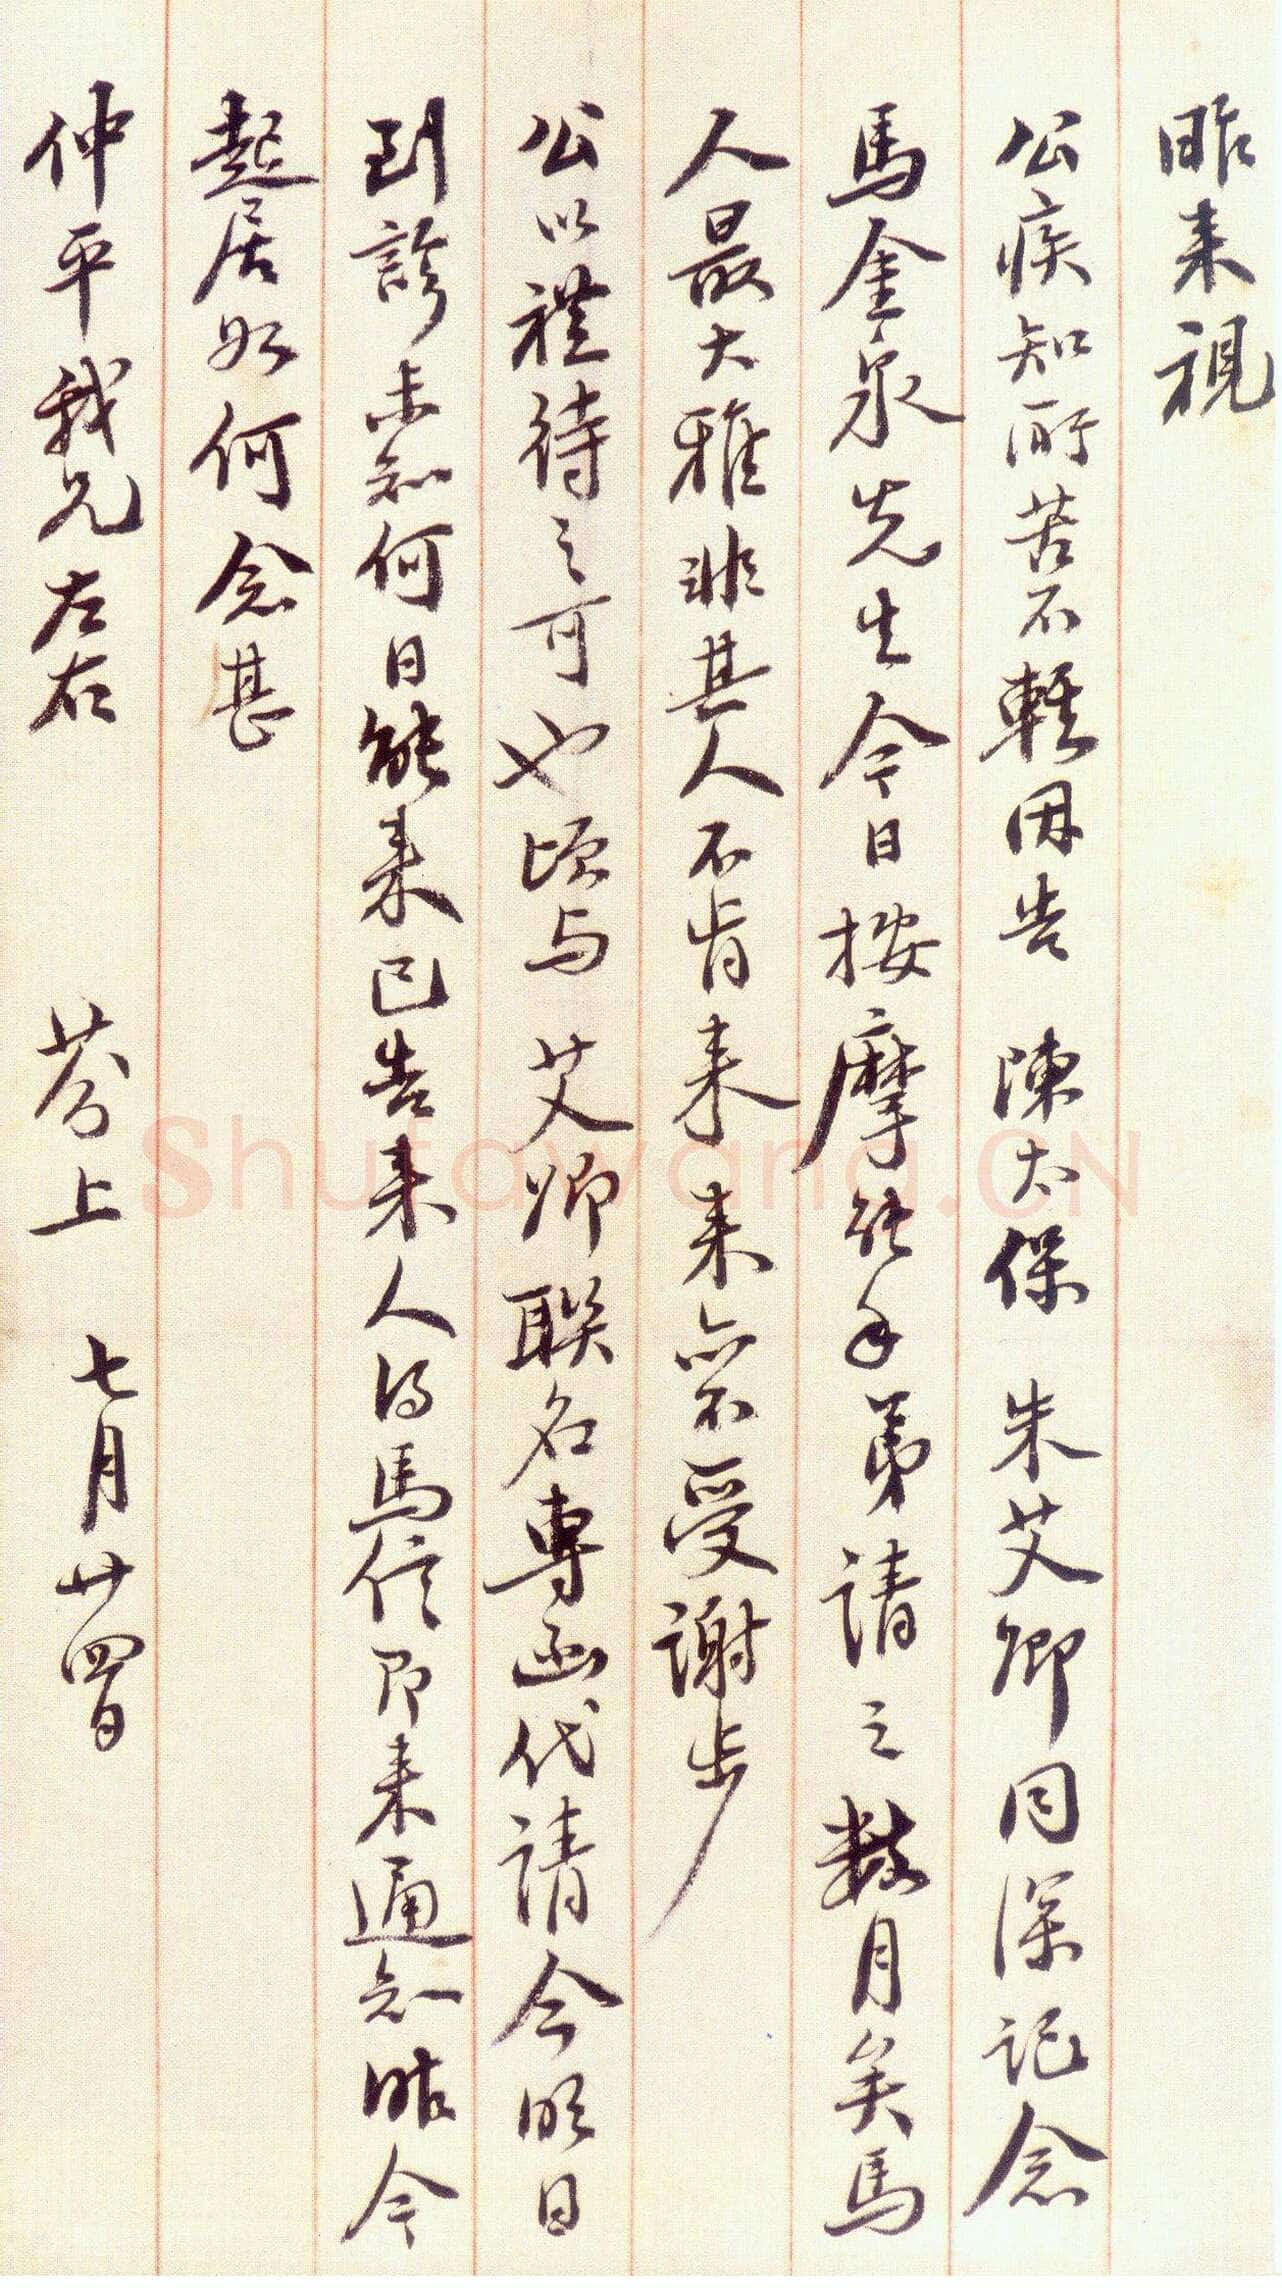 昨来視
公疾知所苦不輕因告 陳太保 朱艾卿同深記念
馬金泉先生今日按摩能手弟請之數月矣馬
人最大雅非其人不肯来来亦不受謝步
公以禮待之可也頃与 艾卿聯名專函代請今明日
到診未知何日能来已告来人得馬信即来通知昨今
起居如何念甚
仲平我兄左右
芬上 七月廿四日
Shufawang.CN